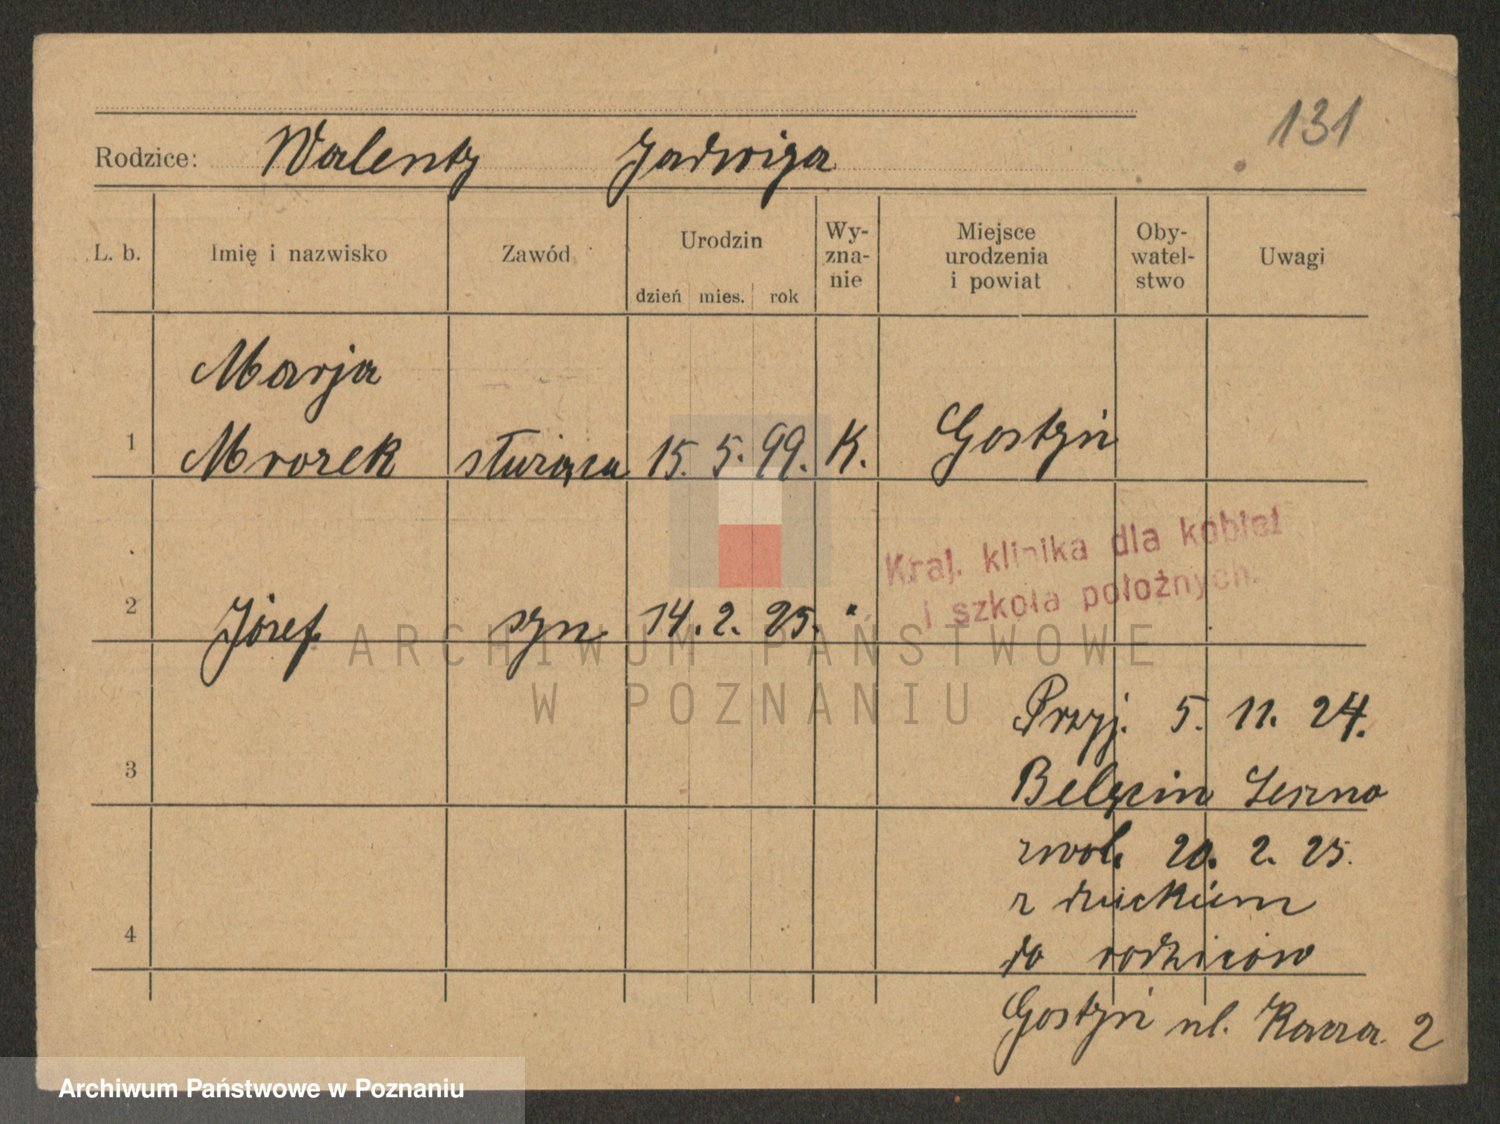 131
Rodzice: Walenty Jadwiga
L. b. Imię i nazwisko Zawód Urodzin dzień mies. rok Wy-zna-nie Miejsce urodzenia i powiat Oby-watel-stwo Uwagi
Marja
1 Mrozek służąca 15. 5. 99. K. Gostyń
Kraj. klinika dla kobiet
i szkoła położnych.
2 Józef syn 14. 2. 25. "
ARCHIWUM PAŃSTWOWE
W POZNANIU
Przyj. 5. 11. 24.
3 Belęcin Leszno
zwol. 20. 2. 25.
z dzieckiem
4 do rodziców
Gostyń ul. 2
Archiwum Państwowe w Poznaniu